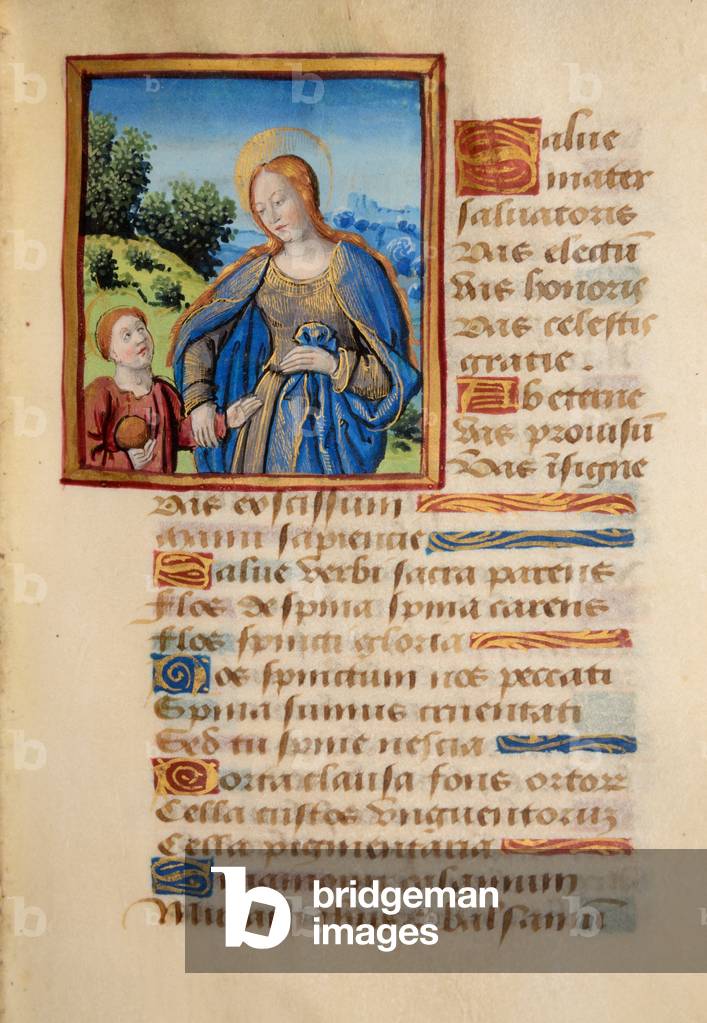 Salue
mater
saluatoris
Vas electū
Vas honoris
Vas celestis
gratie.
Ab eterne
vas prouisū
Vas īsigne
vas excissum
manu sapiencie
Salue verbi sacra parens
flos de spina spina carens
flos spineti gloria
Nos spinetum nos peccati
Spina sumus cruentati
Sed tu spine nescia
Porta clausa fons ortorꝝ
Cella custos vnguentorum
Cella pigmentaria
balsamū
b bridgeman
images